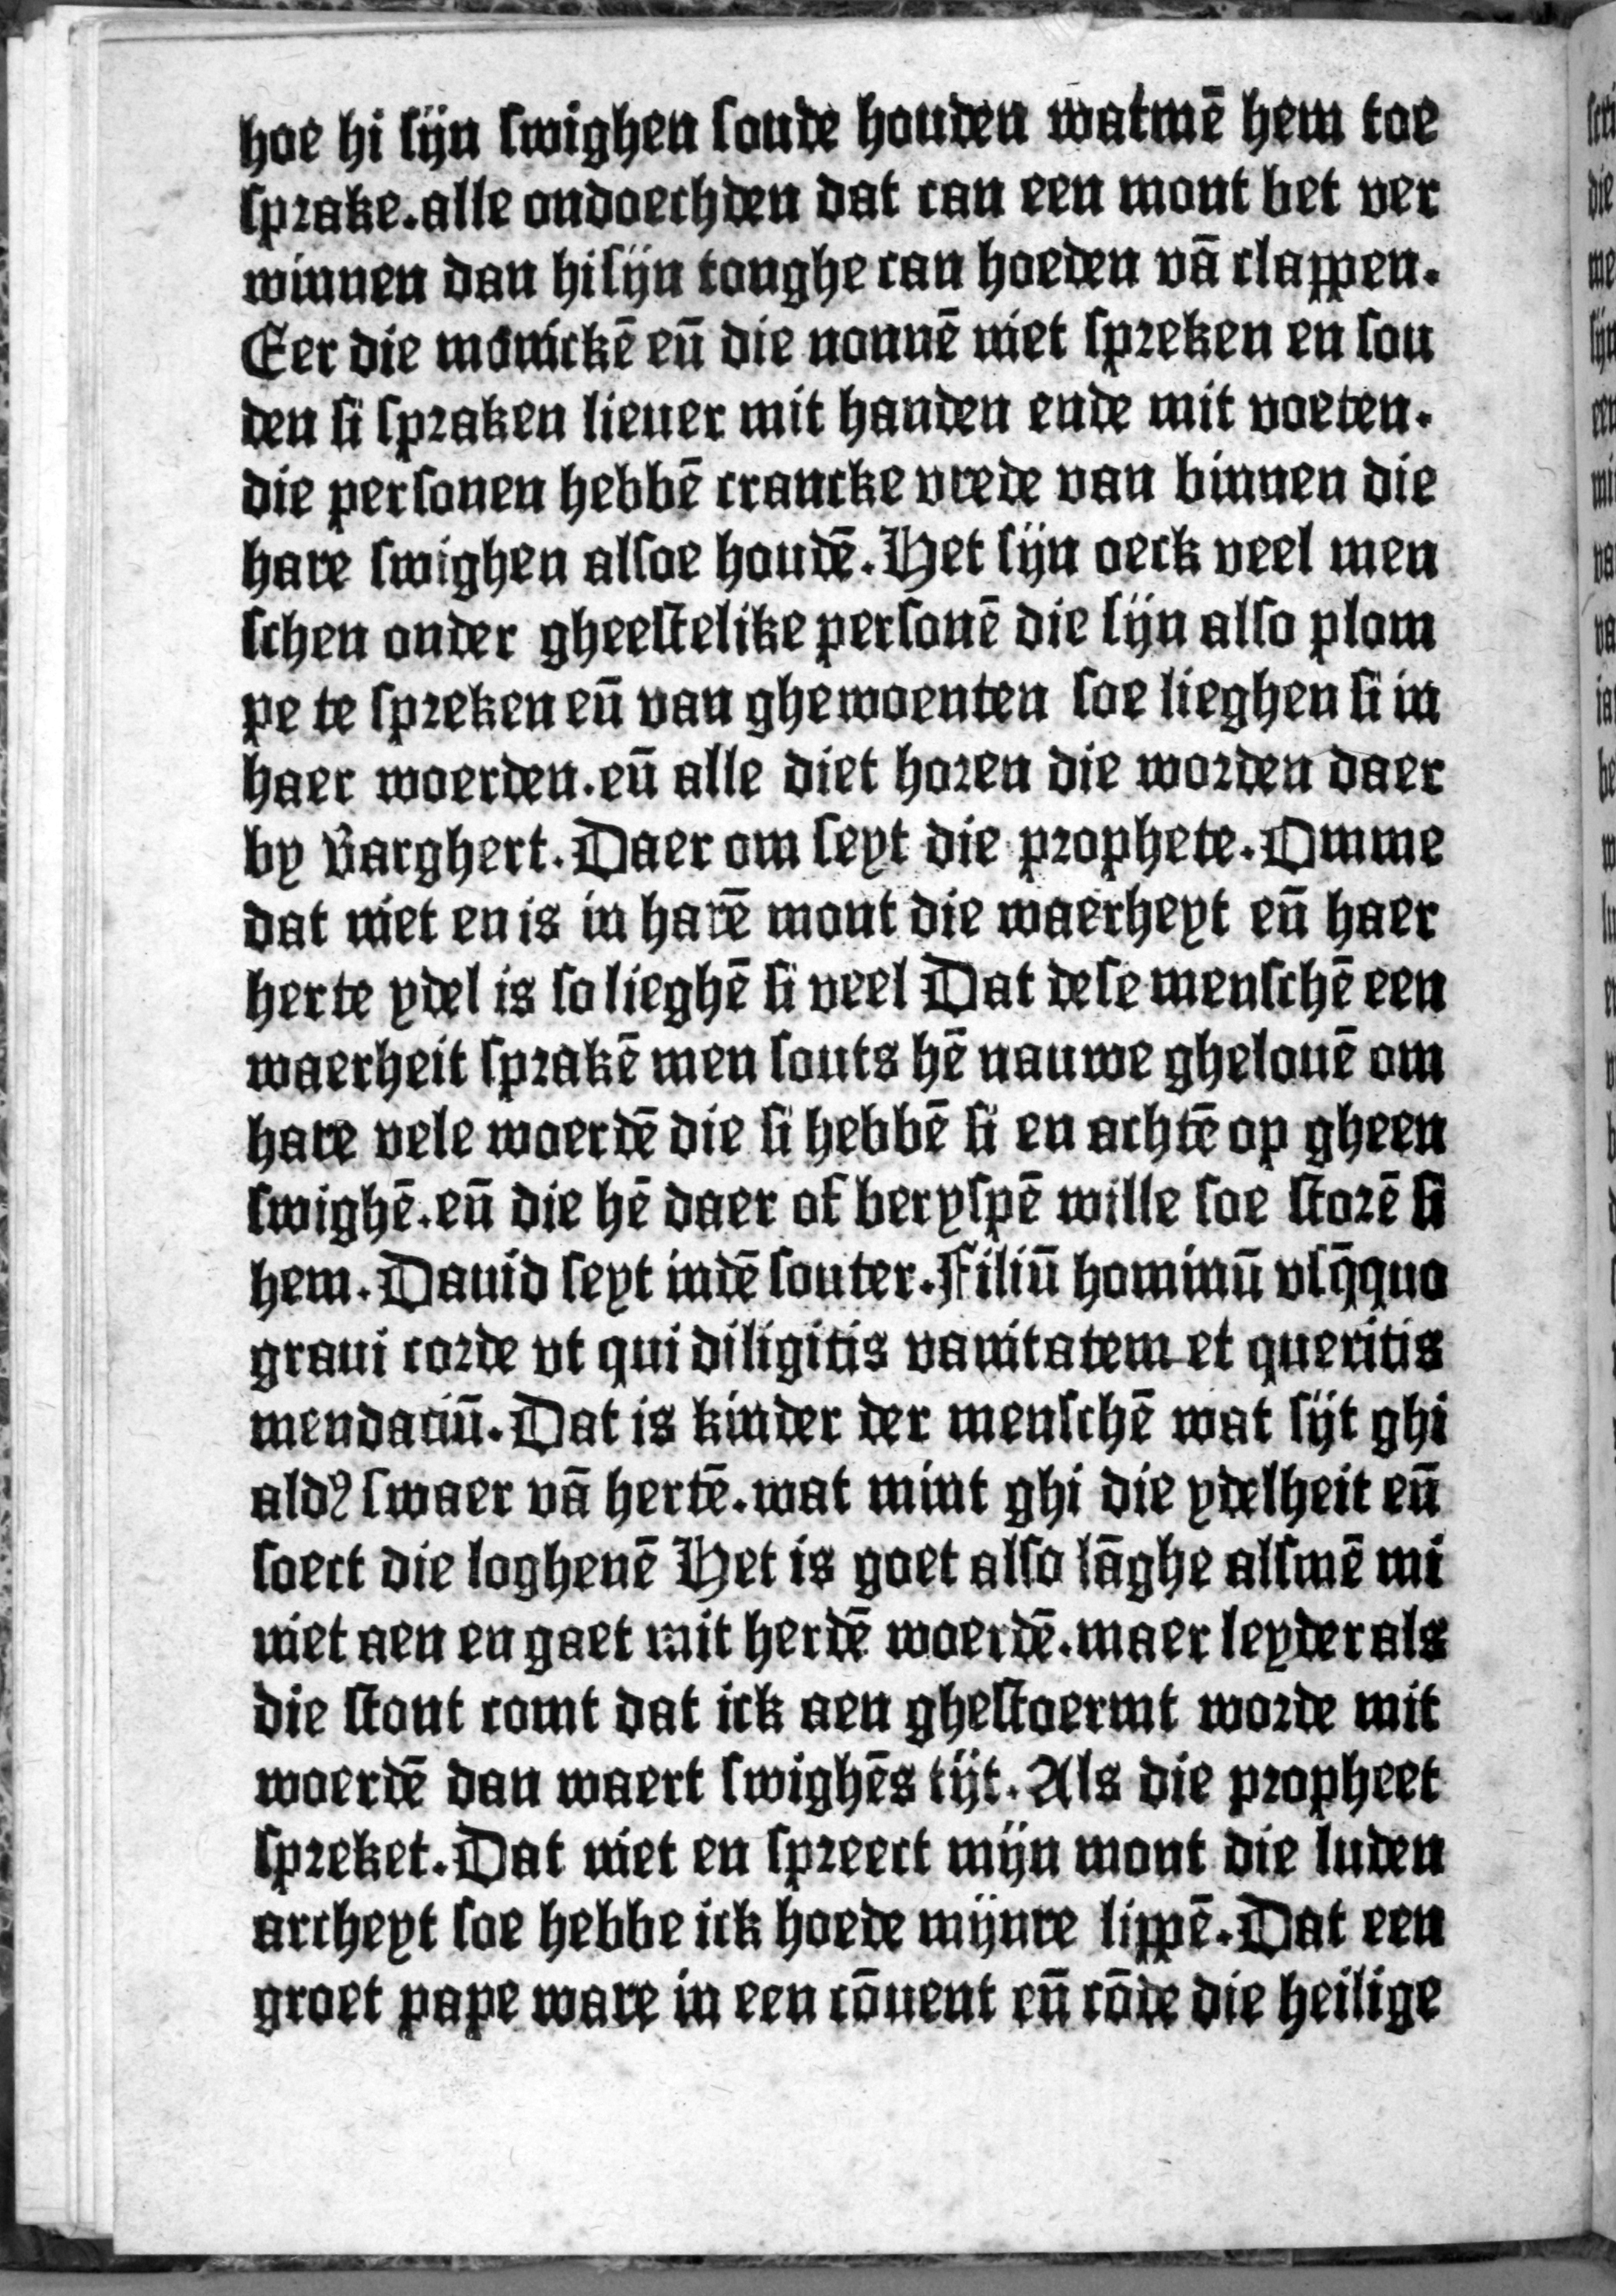 hoe hi sijn swighen soude houden watmē hem toe
sprake.alle ondoechden dat can een mont bet ver
winnen dan hi sijn tonghe can hoeden vā clappen.
Eer die monickē eñ die nonnē niet spreken en sou
den si spraken lieuer mit handen ende mit voeten.
die personen hebbē crancke vrede van binnen die
hare swighen alsoe houdē. Het sijn oeck veel men
schen onder gheestelike personē die sijn also plom
pe te spreken eñ van ghewoenten soe lieghen si in
haer woerden.eñ alle diet horen die worden daer
by varghert. Daer om seyt die prophete. Omme
dat niet en is in harē mont die waerheyt eñ haer
herte ydel is so lieghē si veel Dat dese menschē een
waerheit sprakē men souts hē nauwe ghelouē om
hare vele woerdē die si hebbē si en achtē op gheen
swighē.eñ die hē daer of beryspē wille soe storē si
hem. Dauid seyt indē souter. Filiū hominū vsq̄quo
graui corde vt qui diligitis vanitatem et queritis
mendaciū. Dat is kinder der menschē wat sijt ghi
ald? swaer vā hertē.wat mint ghi die ydelheit eñ
soect die loghenē Het is goet also lāghe alsmē mi
niet aen en gaet mit herdē woerdē.maer leyder als
die stont comt dat ick aen ghestoermt worde mit
woerdē dan waert swighēs tijt. Als die propheet
spreket. Dat niet en spreect mijn mont die luden
archeyt soe hebbe ick hoede mijnre lippē. Dat een
groet pape ware in een cōuent eñ cōde die heilige